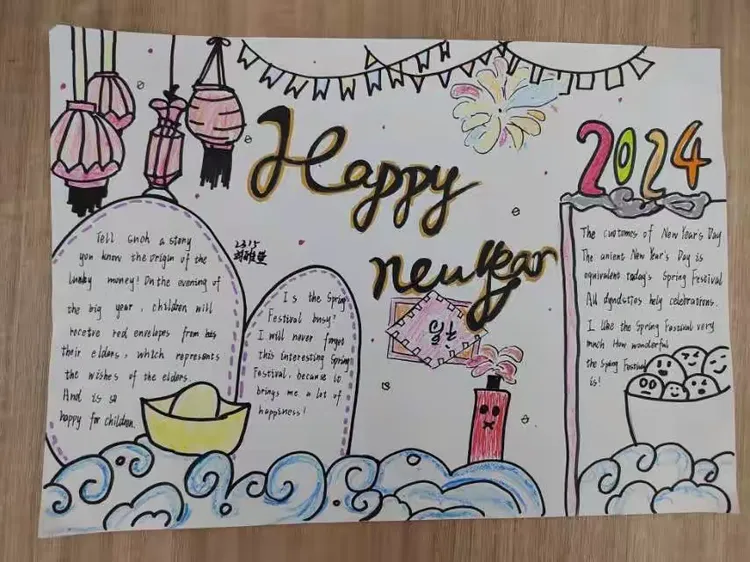 Happy
new year
2024
Tell such a story
you know the origin of the
lucky money! On the evening of
the big year, children will
receive red envelopes from his
their elders, which represents
the wishes of the elders
And is so
happy for children.
2315
Is the Spring
Festival busy?
I will never forget
this interesting Spring
Festival, because it
brings me a lot of
happiness!
福
The customes of New Year's Day
The anient New Year's Day is
equivalent today's Spring Festival
All dyndsties holy celebrations.
I like the Spring Festival very
much How wonderful
the Spring Festival
is!